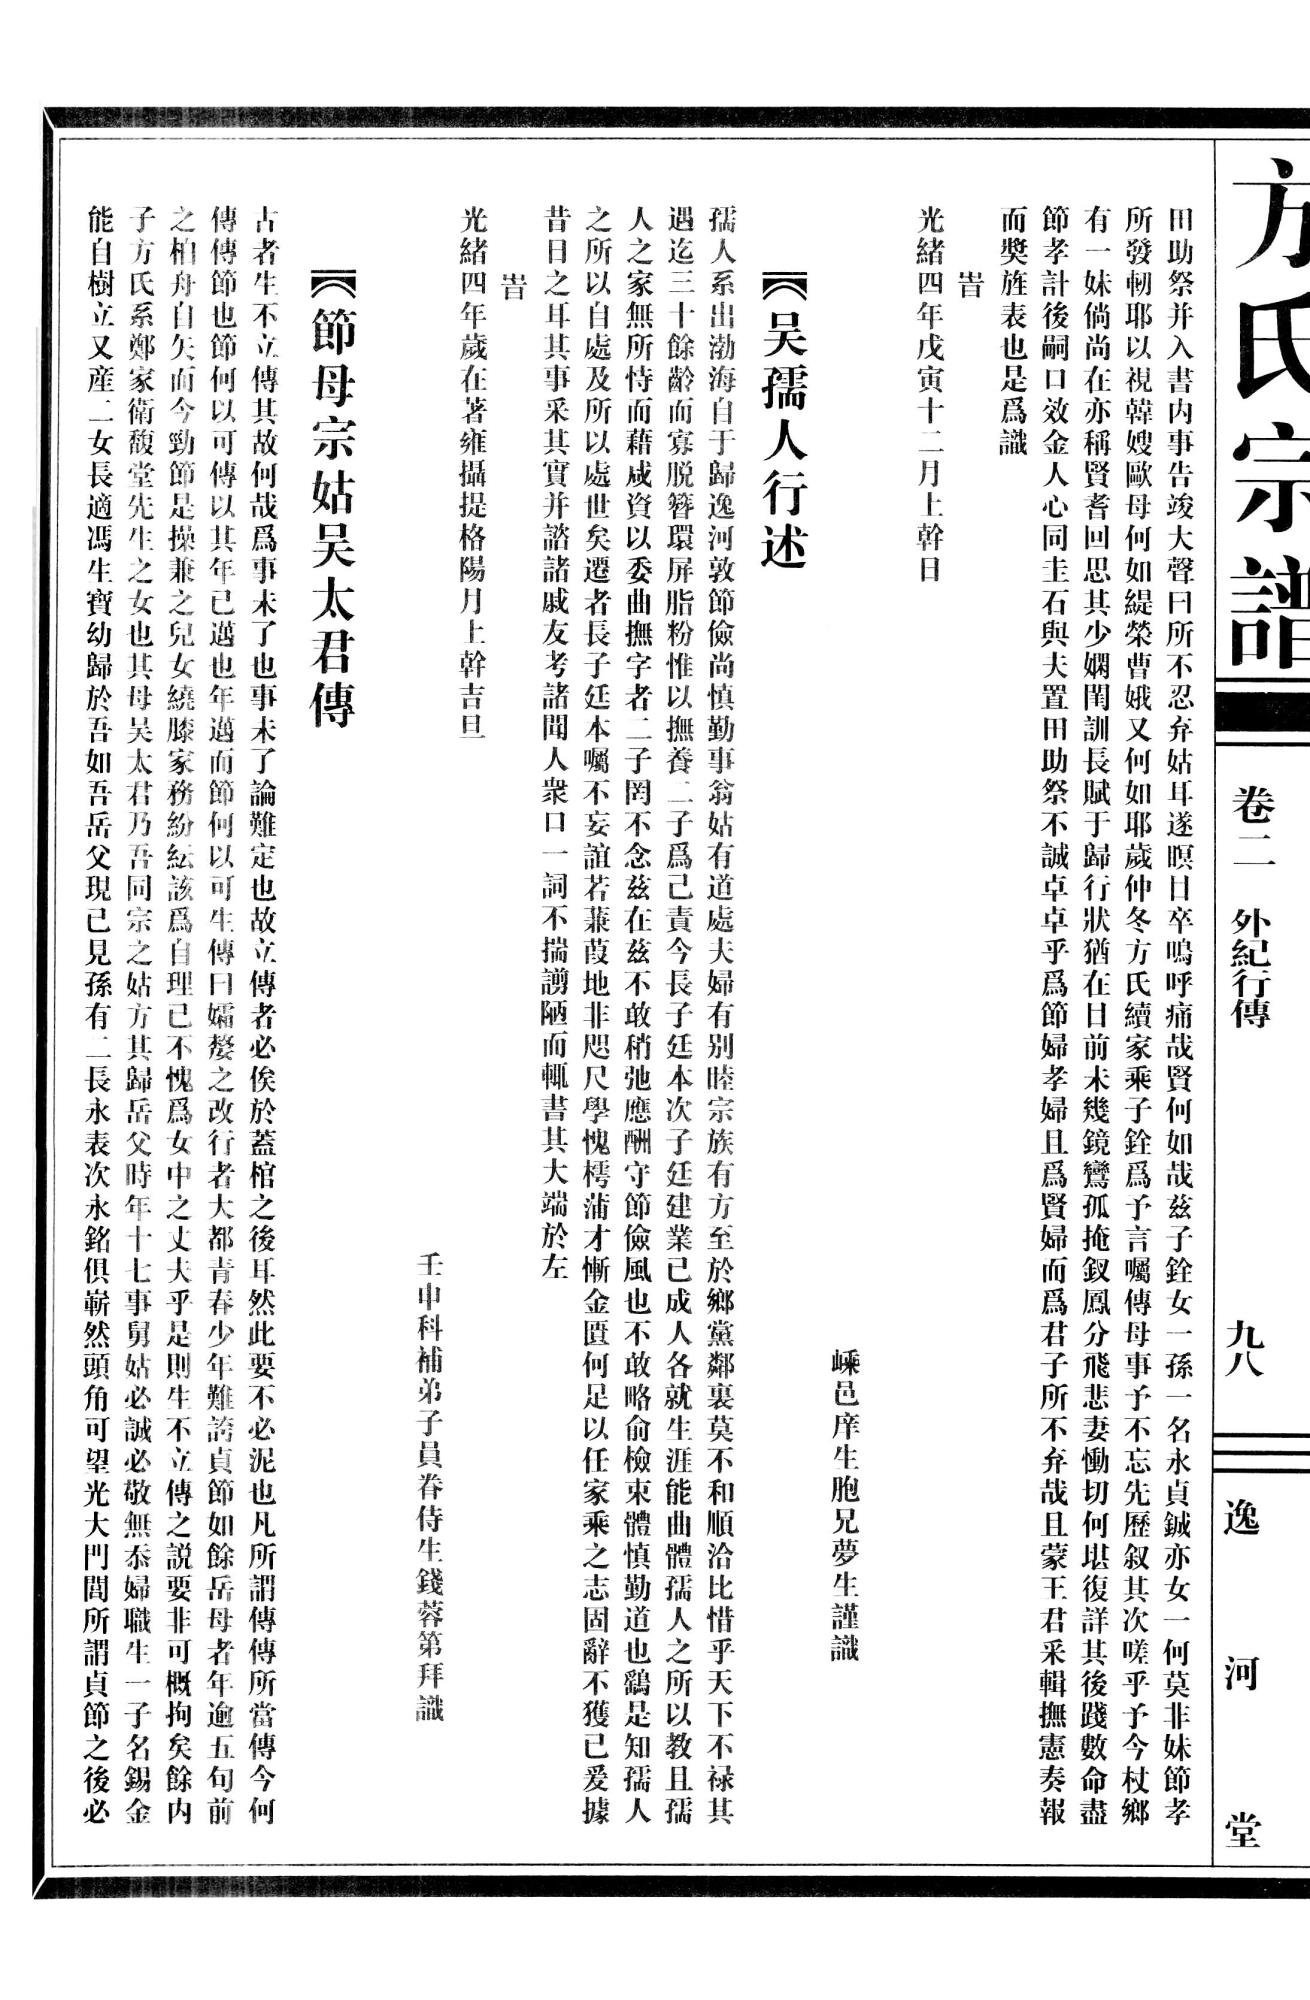 方氏宗譜
卷二 外紀行傳
九八
逸河堂
田助祭并入書内事告竣大聲曰所不忍弃姑耳遂暝日卒嗚呼痛哉賢何如哉兹子銓女一孫一名永貞鋮亦女一何莫非妹節孝
所發軔耶以視韓嫂歐母何如緹榮曹娥又何如耶歲仲冬方氏續家乘子銓爲予言囑傳母事予不忘先歷叙其次嗟乎予今杖鄉
有一妹倘尚在亦稱賢耆回思其少嫻閨訓長賦于歸行狀猶在日前未幾鏡鸞孤掩釵鳳分飛悲妻慟切何堪復詳其後踐數命盡
節孝計後嗣口效金人心同圭石與夫置田助祭不誠卓卓乎爲節婦孝婦且爲賢婦而爲君子所不弃哉且蒙王君采輯撫憲奏報
而獎旌表也是爲識
旹
光緒四年戊寅十二月上幹日
嵊邑庠生胞兄夢生謹識
吴孺人行述
孺人系出渤海自于歸逸河敦節儉尚慎勤事翁姑有道處夫婦有别睦宗族有方至於鄉黨鄰裏莫不和順洽比惜乎天下不禄其
遇迄三十餘齡而寡脱簪環屏脂粉惟以撫養二子爲己責今長子廷本次子廷建業已成人各就生涯能曲體孺人之所以教且孺
人之家無所恃而藉咸資以委曲撫字者二子罔不念兹在兹不敢稍弛應酬守節儉風也不敢略俞檢束體慎勤道也鷂是知孺人
之所以自處及所以處世矣遷者長子廷本囑不妄誼若蒹葭地非咫尺學愧樗蒲才慚金匱何足以任家乘之志固辭不獲已爰據
昔日之耳其事采其實并諮諸戚友考諸聞人衆口一詞不揣謭陋而輒書其大端於左
旹
光緒四年歲在著雍攝提格陽月上幹吉旦
壬申科補弟子員眷侍生錢蓉第拜識
節母宗姑吴太君傳
古者生不立傳其故何哉爲事未了也事未了論難定也故立傳者必俟於蓋棺之後耳然此要不必泥也凡所謂傳傳所當傳今何
傳傳節也節何以可傳以其年已邁也年邁而節何以可生傳曰孀嫠之改行者大都青春少年難誇貞節如餘岳母者年逾五旬前
之柏舟自矢而今勁節是操兼之兒女繞膝家務紛紜該爲自理已不愧爲女中之丈夫乎是則生不立傳之説要非可概拘矣餘内
子方氏系鄭家衛馥堂先生之女也其母吴太君乃吾同宗之姑方其歸岳父時年十七事舅姑必誠必敬無忝婦職生一子名錫金
能自樹立又産二女長適馮生寶幼歸於吾如吾岳父現已見孫有二長永表次永銘俱嶄然頭角可望光大門閭所謂貞節之後必